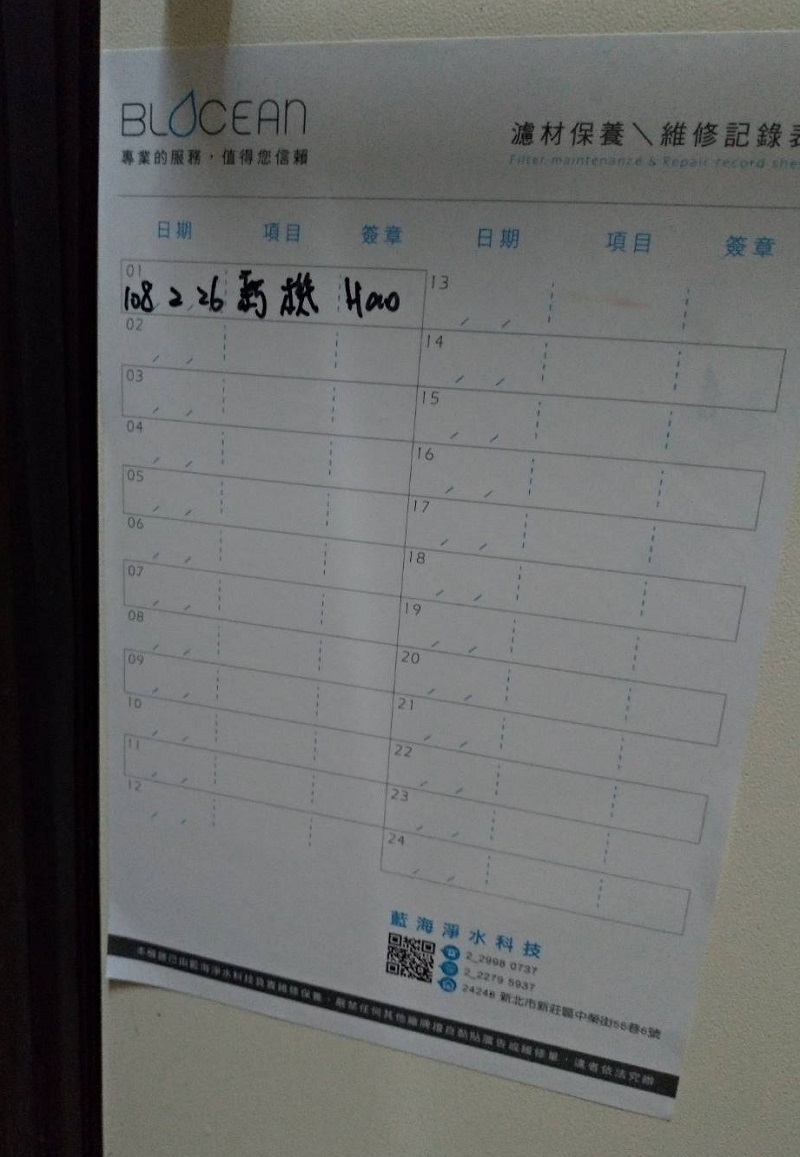 BLOCEAN
專業的服務，值得您信賴
濾材保養＼維修記錄表
Filter maintenance & Repair record she
日期 項目 簽章 日期 項目 簽章
01
108 2 26 新機 Hao
02
03
04
05
06
07
08
09
10
11
12
13
14
15
16
17
18
19
20
21
22
23
24
藍海淨水科技
2_2998 0737
2_2279 5937
24246 新北市新莊區中榮街56巷6號
本機器已由藍海淨水科技負責維修保養，嚴禁任何其他廠牌擅自黏貼廣告或維修單，違者依法究辦